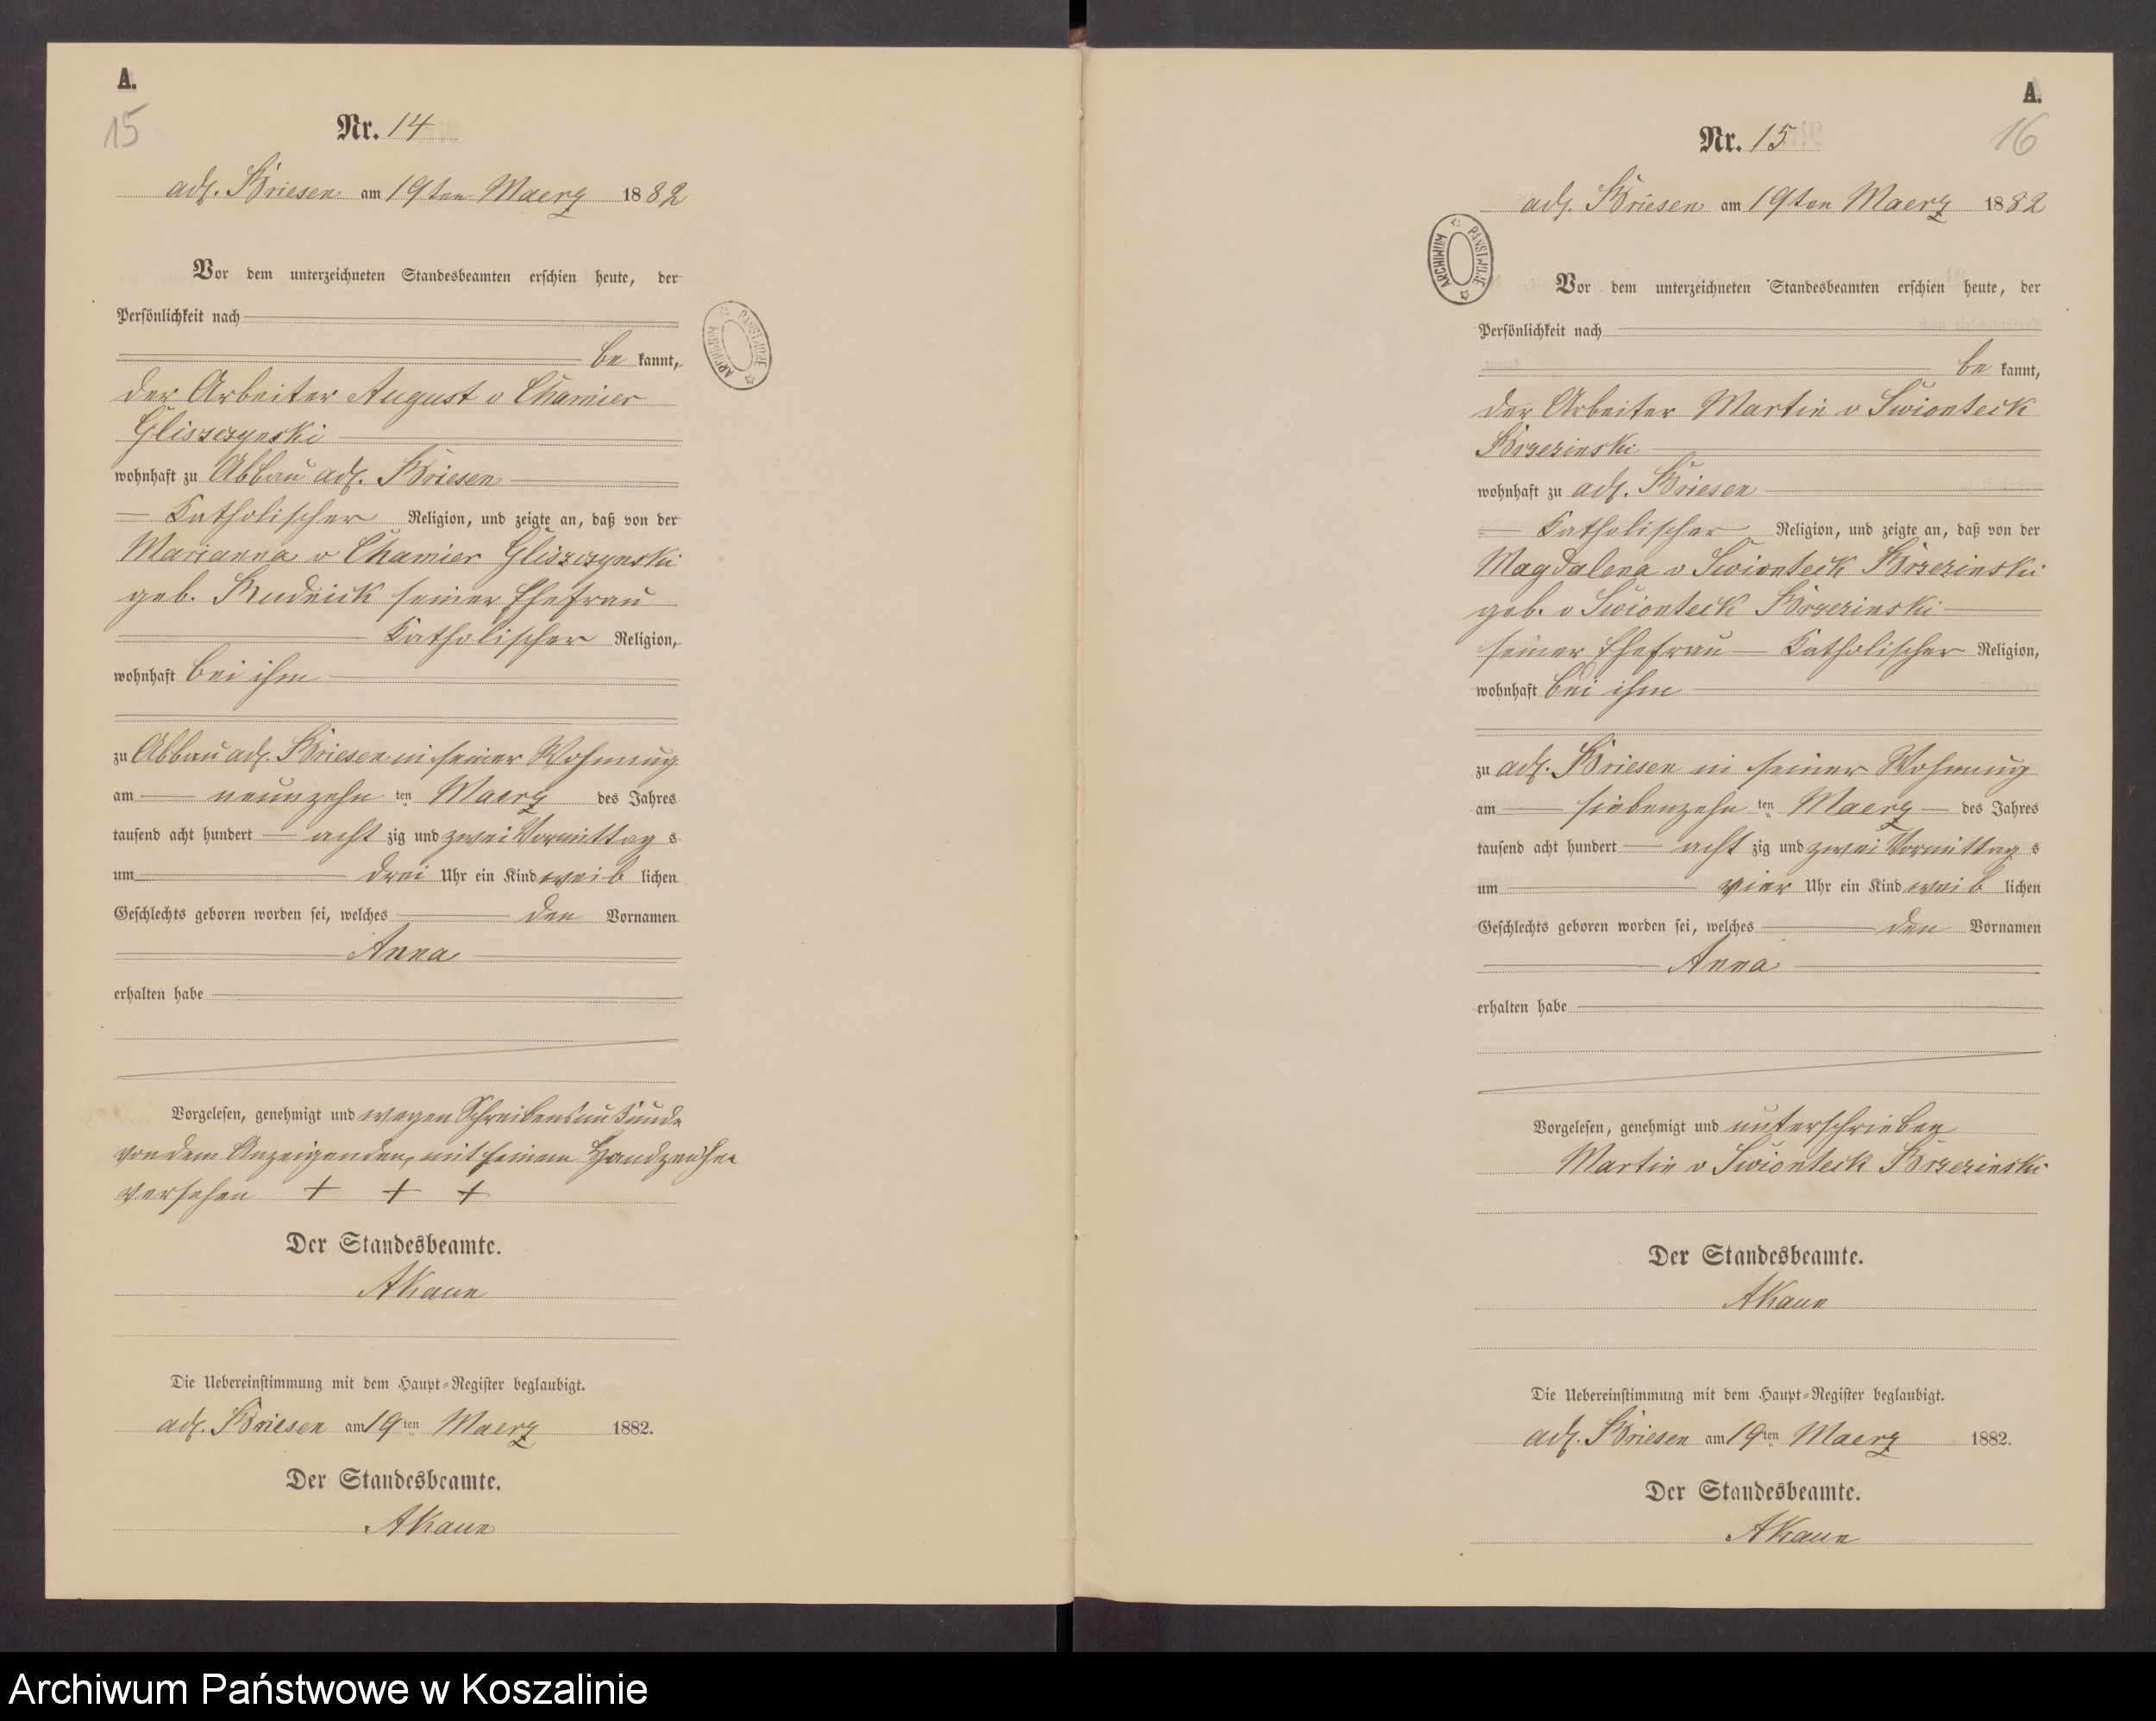 A.
15
Nr. 14
adl. Briesen am 19ten Maerz 1882
Vor dem unterzeichneten Standesbeamten erschien heute, der
Persönlichkeit nach
be kannt,
der Arbeiter August v Chamier
Gliszczynski
wohnhaft zu Abbau adl. Briesen
Katholischer Religion, und zeigte an, daß von der
Marianna v Chamier Gliszczynski
geb. Rudnick seiner Ehefrau
Katholischer Religion,
wohnhaft bei ihm
zu Abbau adl. Briesen in seiner Wohnung
am neunzehn ten Maerz des Jahres
tausend acht hundert acht zig und zwei Vormittag s
um drei Uhr ein Kind weib lichen
Geschlechts geboren worden sei, welches den Vornamen
Anna
erhalten habe
Vorgelesen, genehmigt und wegen Schreibensunkunde
von dem Anzeigenden, mit seinem Handzeichen
versehen + + +
Der Standesbeamte.
AKaun
Die Uebereinstimmung mit dem Haupt-Register beglaubigt.
adl. Briesen am 19ten Maerz 1882.
Der Standesbeamte.
AKaun
A.
16
Nr. 15
adl. Briesen am 19ten Maerz 1882
ARCHIWUM PAŃSTWOWE
Vor dem unterzeichneten Standesbeamten erschien heute, der
Persönlichkeit nach
be kannt,
der Arbeiter Martin v Swionteck
Brzezinski
wohnhaft zu adl. Briesen
Katholischer Religion, und zeigte an, daß von der
Magdalena v Swionteck Brzezinski
geb. v Swionteck Brzezinski
seiner Ehefrau Katholischer Religion,
wohnhaft bei ihm
zu adl. Briesen in seiner Wohnung
am siebenzehn ten Maerz des Jahres
tausend acht hundert acht zig und zwei Vormittag s
um vier Uhr ein Kind weib lichen
Geschlechts geboren worden sei, welches den Vornamen
Anna
erhalten habe
Vorgelesen, genehmigt und unterschrieben
Martin v Swionteck Brzezinski
Der Standesbeamte.
AKaun
Die Uebereinstimmung mit dem Haupt-Register beglaubigt.
adl. Briesen am 19ten Maerz 1882.
Der Standesbeamte.
AKaun
ARCHIWUM PAŃSTWOWE
Archiwum Państwowe w Koszalinie